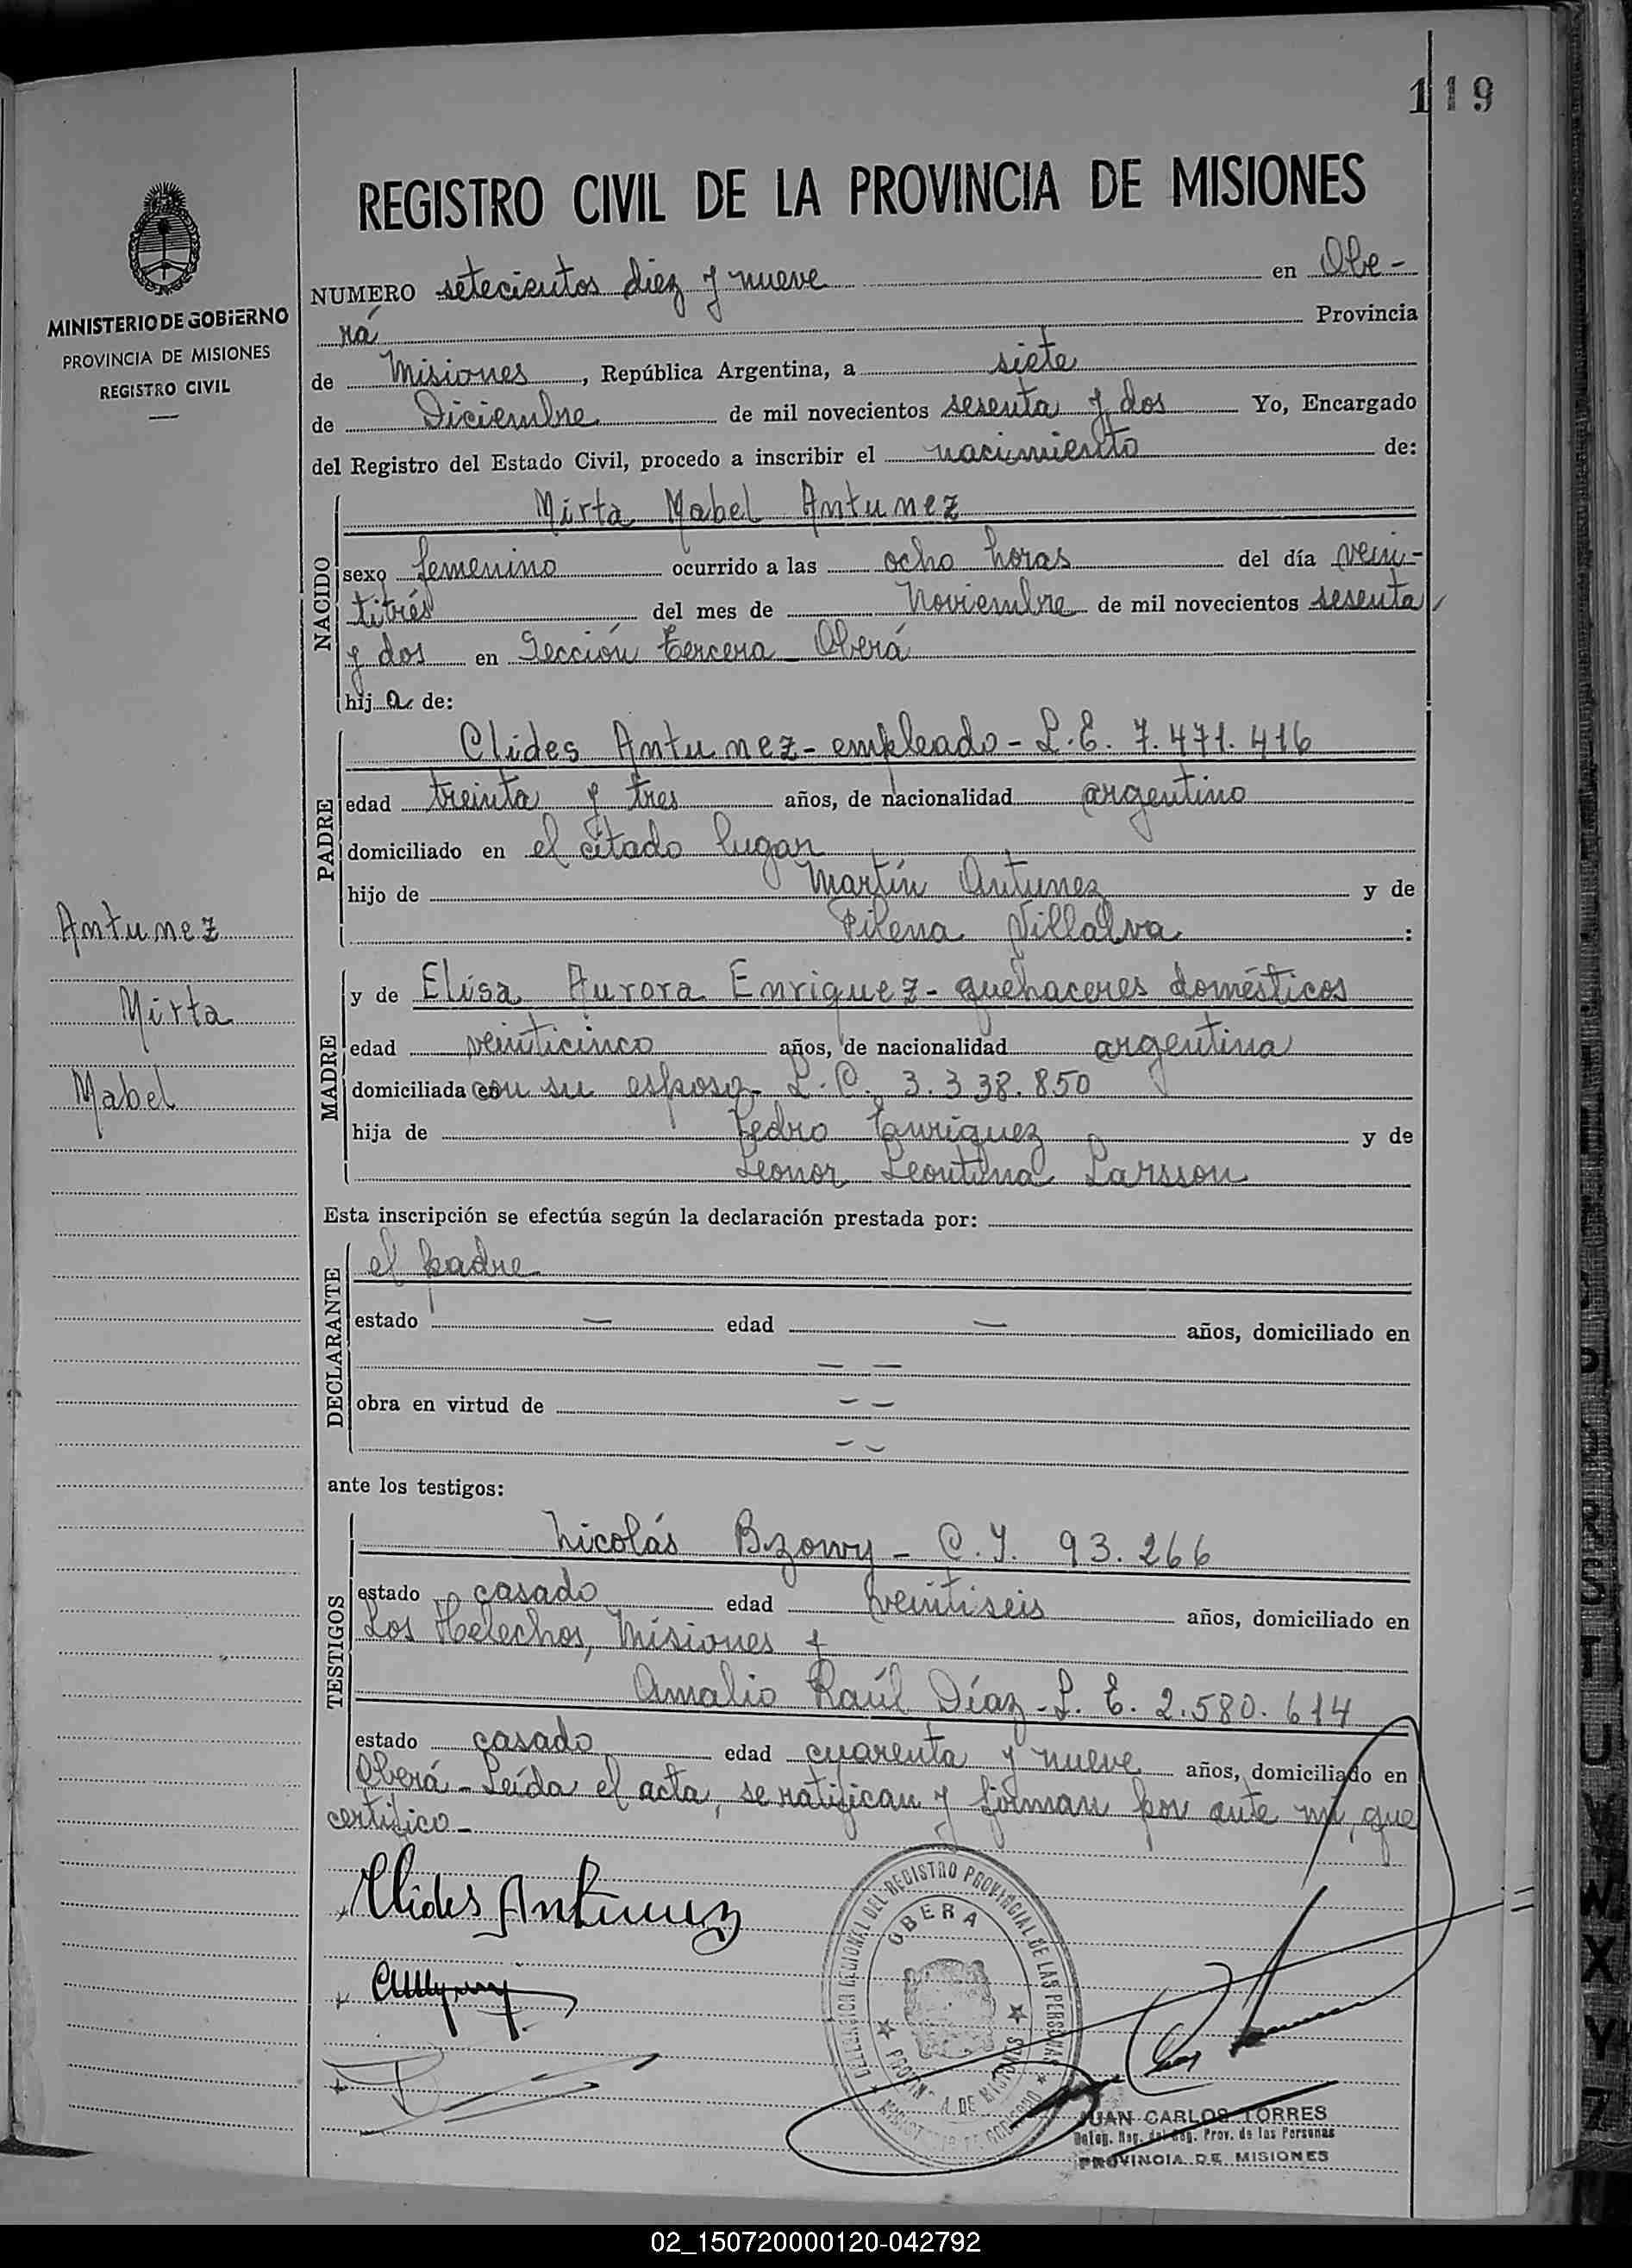 119
REGISTRO CIVIL DE LA PROVINCIA DE MISIONES
MINISTERIO DE GOBIERNO
PROVINCIA DE MISIONES
REGISTRO CIVIL
NUMERO setecientos diez y nueve en Obe-
rá Provincia
de Misiones, República Argentina, a siete
de Diciembre de mil novecientos sesenta y dos Yo, Encargado
del Registro del Estado Civil, procedo a inscribir el nacimiento de:
NACIDO
Mirta Mabel Antunez
sexo femenino ocurrido a las ocho horas del día vein-
titrés del mes de Noviembre de mil novecientos sesenta
y dos en Sección tercera Oberá
hija de:
PADRE
Clides Antunez - empleado - L.E. 7.471.416
edad treinta y tres años, de nacionalidad argentino
domiciliado en el citado lugar
hijo de Martín Antunez y de
Villalva :
Antunez
Mirta
Mabel
MADRE
y de Elisa Aurora Enriquez - quehaceres domésticos
edad veinticinco años, de nacionalidad argentina
domiciliada con su esposo - L.C. 3.338.850
hija de Pedro Enriquez y de
Leonor Leontina Larsson
Esta inscripción se efectúa según la declaración prestada por:
DECLARANTE
el padre
estado — edad — años, domiciliado en
— —
obra en virtud de — —
— —
ante los testigos:
TESTIGOS
Nicolás Bzowy - C.I. 93.266
estado casado edad veintiseis años, domiciliado en
Los Helechos, Misiones y
Amalio Raúl Díaz - L.E. 2.580.614
estado casado edad cuarenta y nueve años, domiciliado en
Oberá - Leída el acta, se ratifican y firman por ante mi, que
certifico -
Clides Antunez
DELEGACION REGIONAL DEL REGISTRO PROVINCIAL DE LAS PERSONAS
OBERA
PROVINCIA DE MISIONES
MINISTERIO DE GOBIERNO
JUAN CARLOS TORRES
Deleg. Reg. del Reg. Prov. de las Personas
PROVINCIA DE MISIONES
S
T
U
V
W
X
Y
Z
02_150720000120-042792